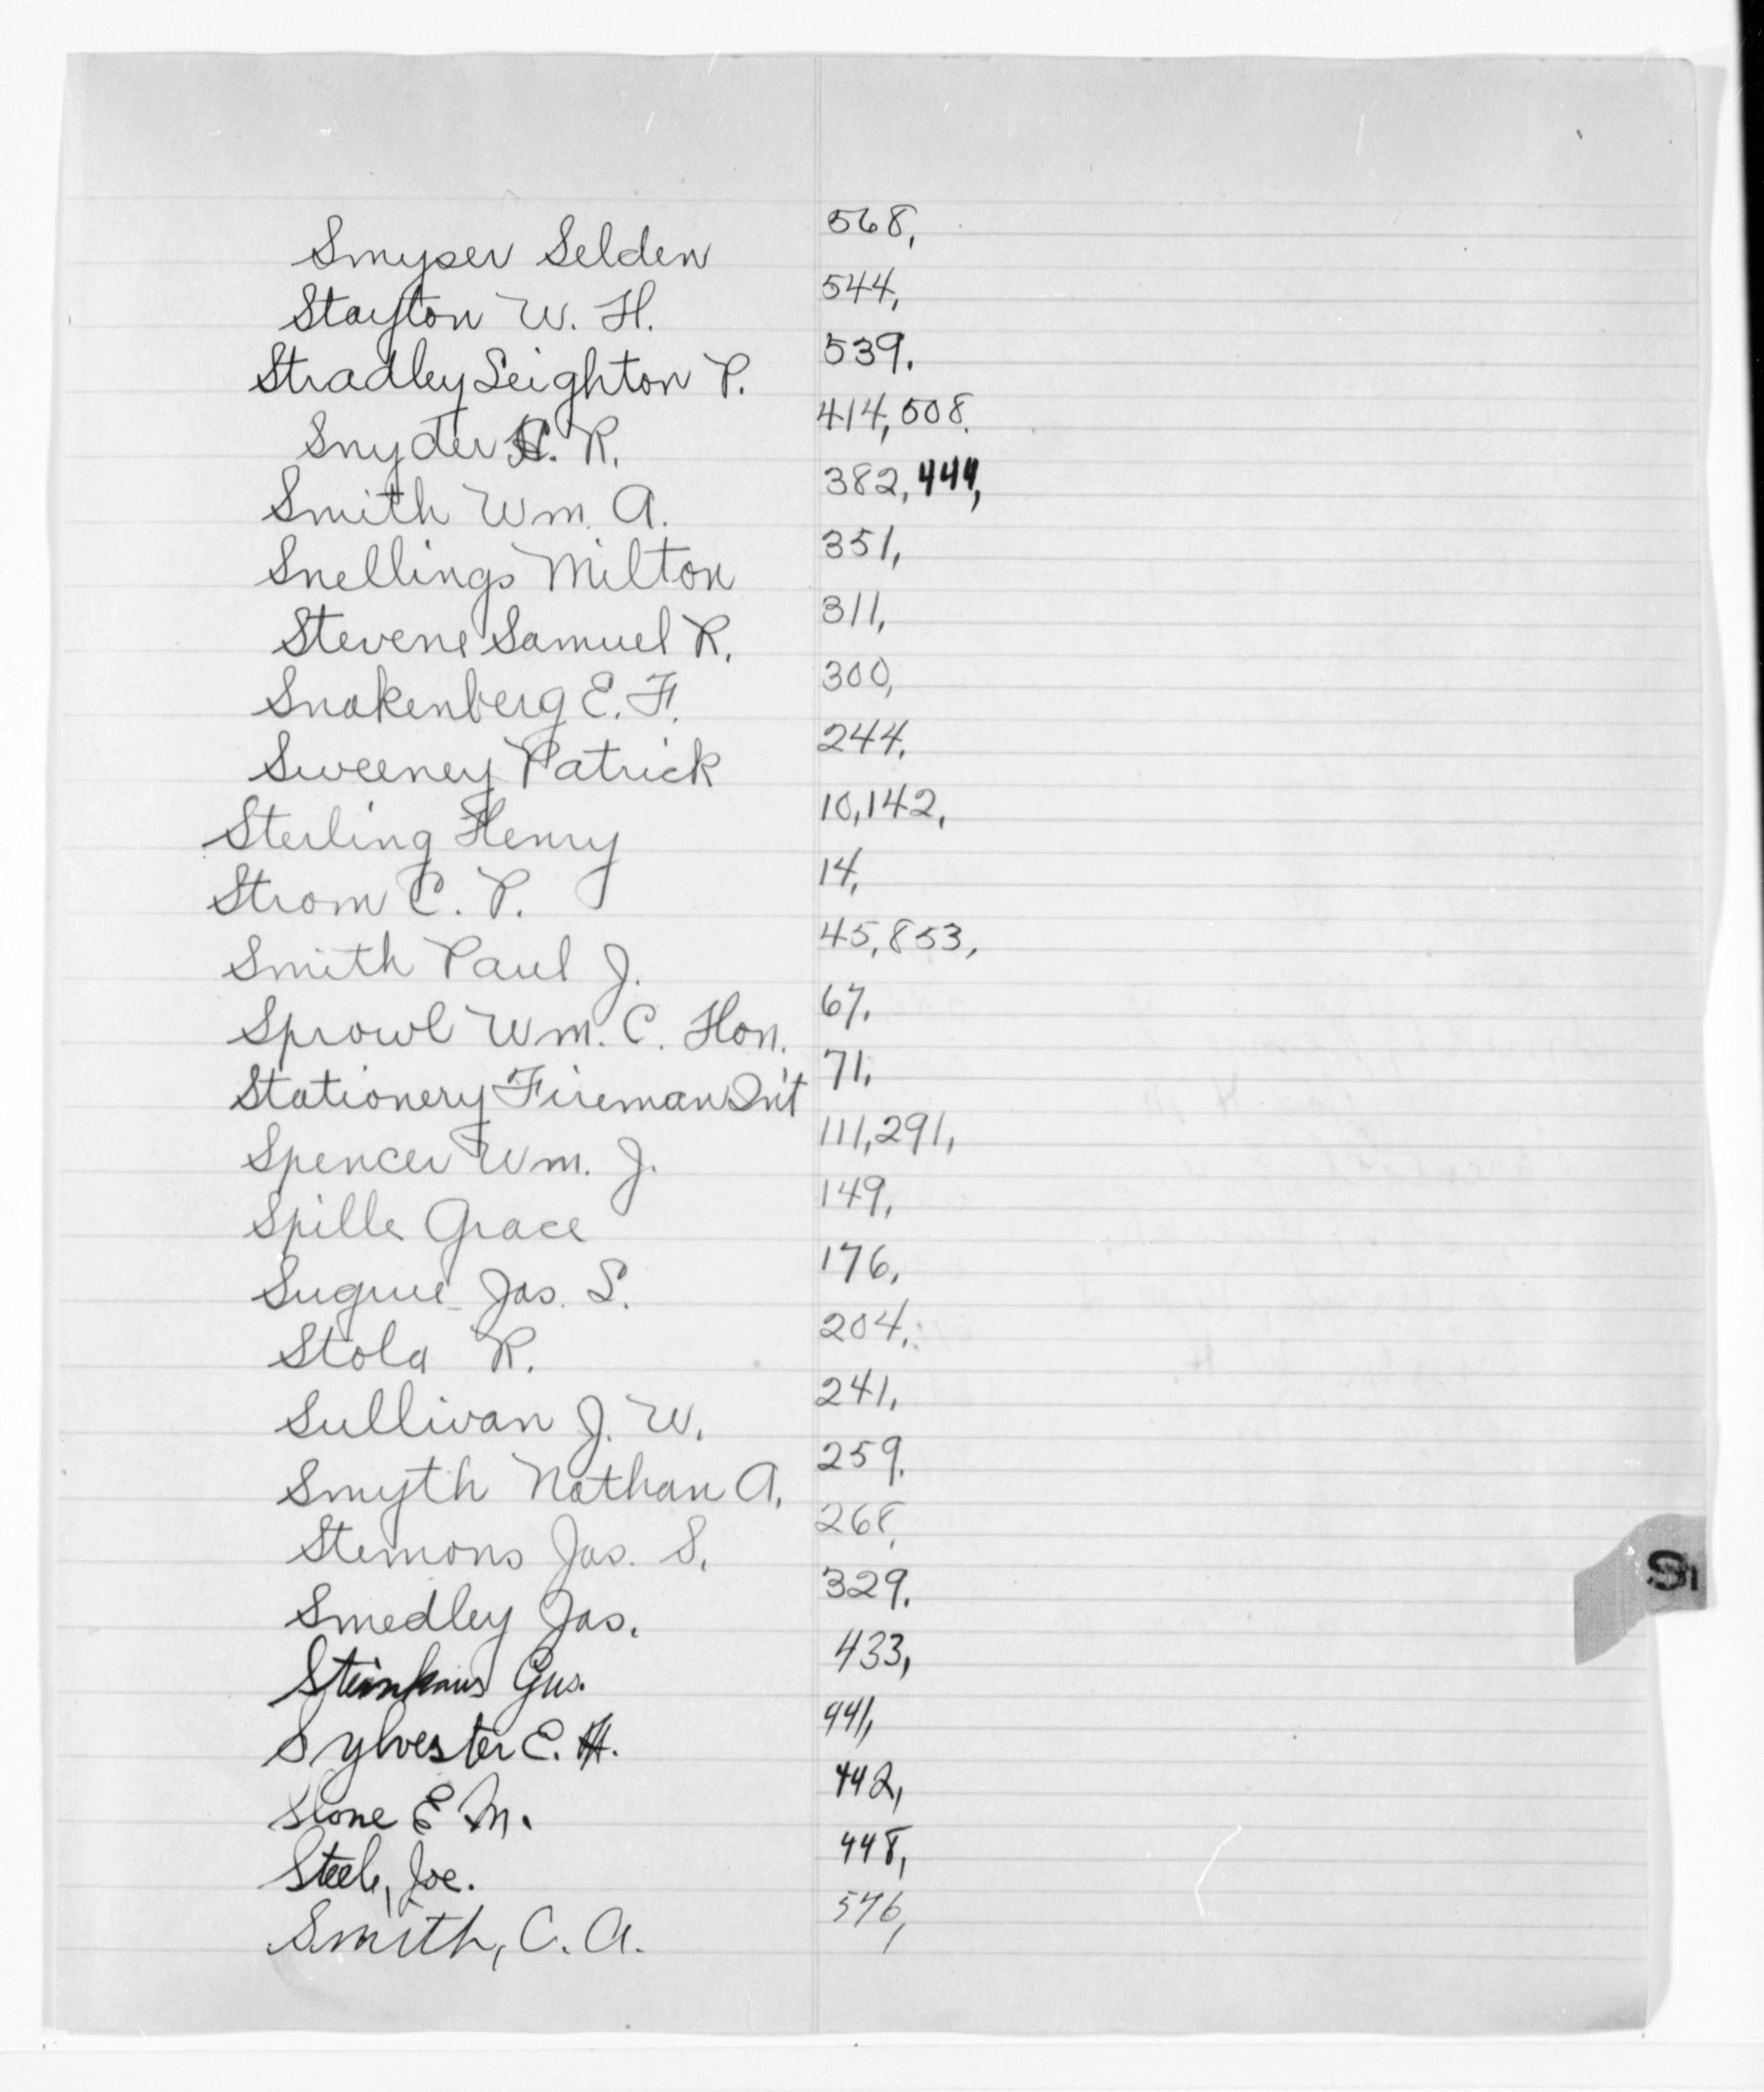 Smyser Selden 568,
Stayton W. H. 544,
Stradley Leighton P. 539,
Snyder H. R. 414, 508.
Smith Wm. A. 382, 444,
Snellings Milton 351,
Stevens Samuel R. 311,
Snakenberg E. F. 300,
Sweeney Patrick 244,
Sterling Henry 10, 142,
Strom C. P. 14,
Smith Paul J. 45, 853,
Sprowl Wm. C. Hon. 67,
Stationery Fireman Int 71,
Spencer Wm. J. 111, 291,
Spille Grace 149,
Sugrue Jas. S. 176,
Stola R. 204,
Sullivan J. W. 241,
Smyth Nathan A. 259,
Stemons Jas. S. 268,
Smedley Jas. 329,
Steinhaus Gus. 433,
Sylvester E. H. 441,
E M. 442,
Steele, Joe. 448,
Smith, C. A. 576,